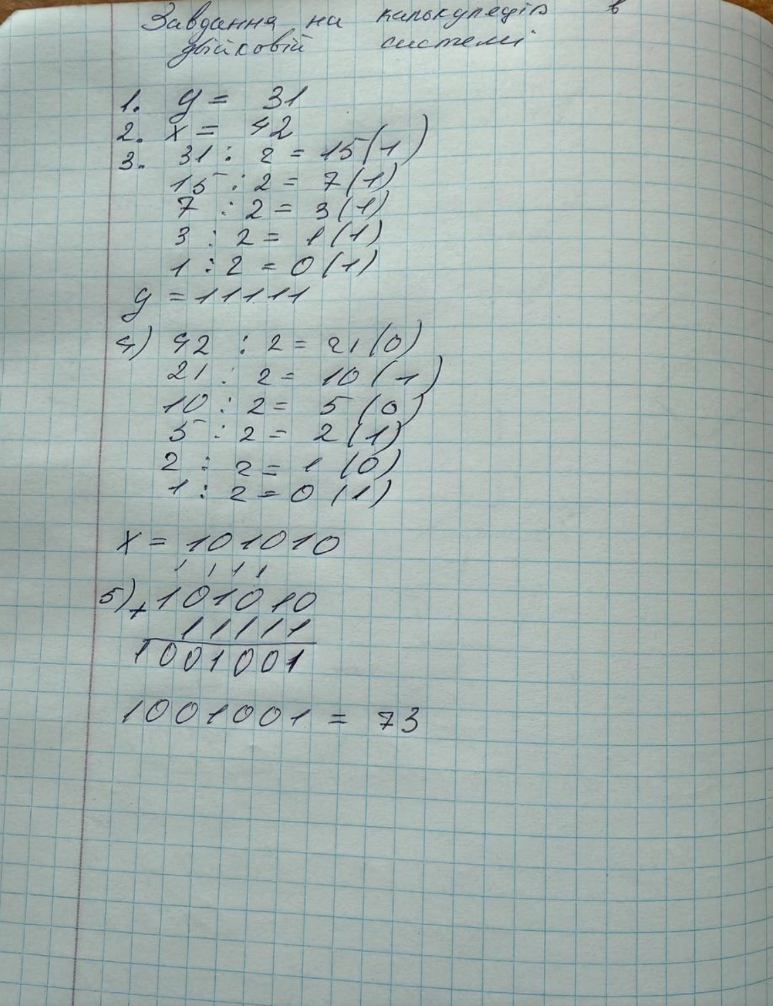 Завдання на калькуляція в
двійковій системі
1. y = 31
2. x = 42
3. 31 : 2 = 15 (1)
15 : 2 = 7 (1)
7 : 2 = 3 (1)
3 : 2 = 1 (1)
1 : 2 = 0 (1)
y = 11111
4) 42 : 2 = 21 (0)
21 : 2 = 10 (1)
10 : 2 = 5 (0)
5 : 2 = 2 (1)
2 : 2 = 1 (0)
1 : 2 = 0 (1)
x = 101010
1 1 1 1
5) + 101010
11111
1001001
1001001 = 73